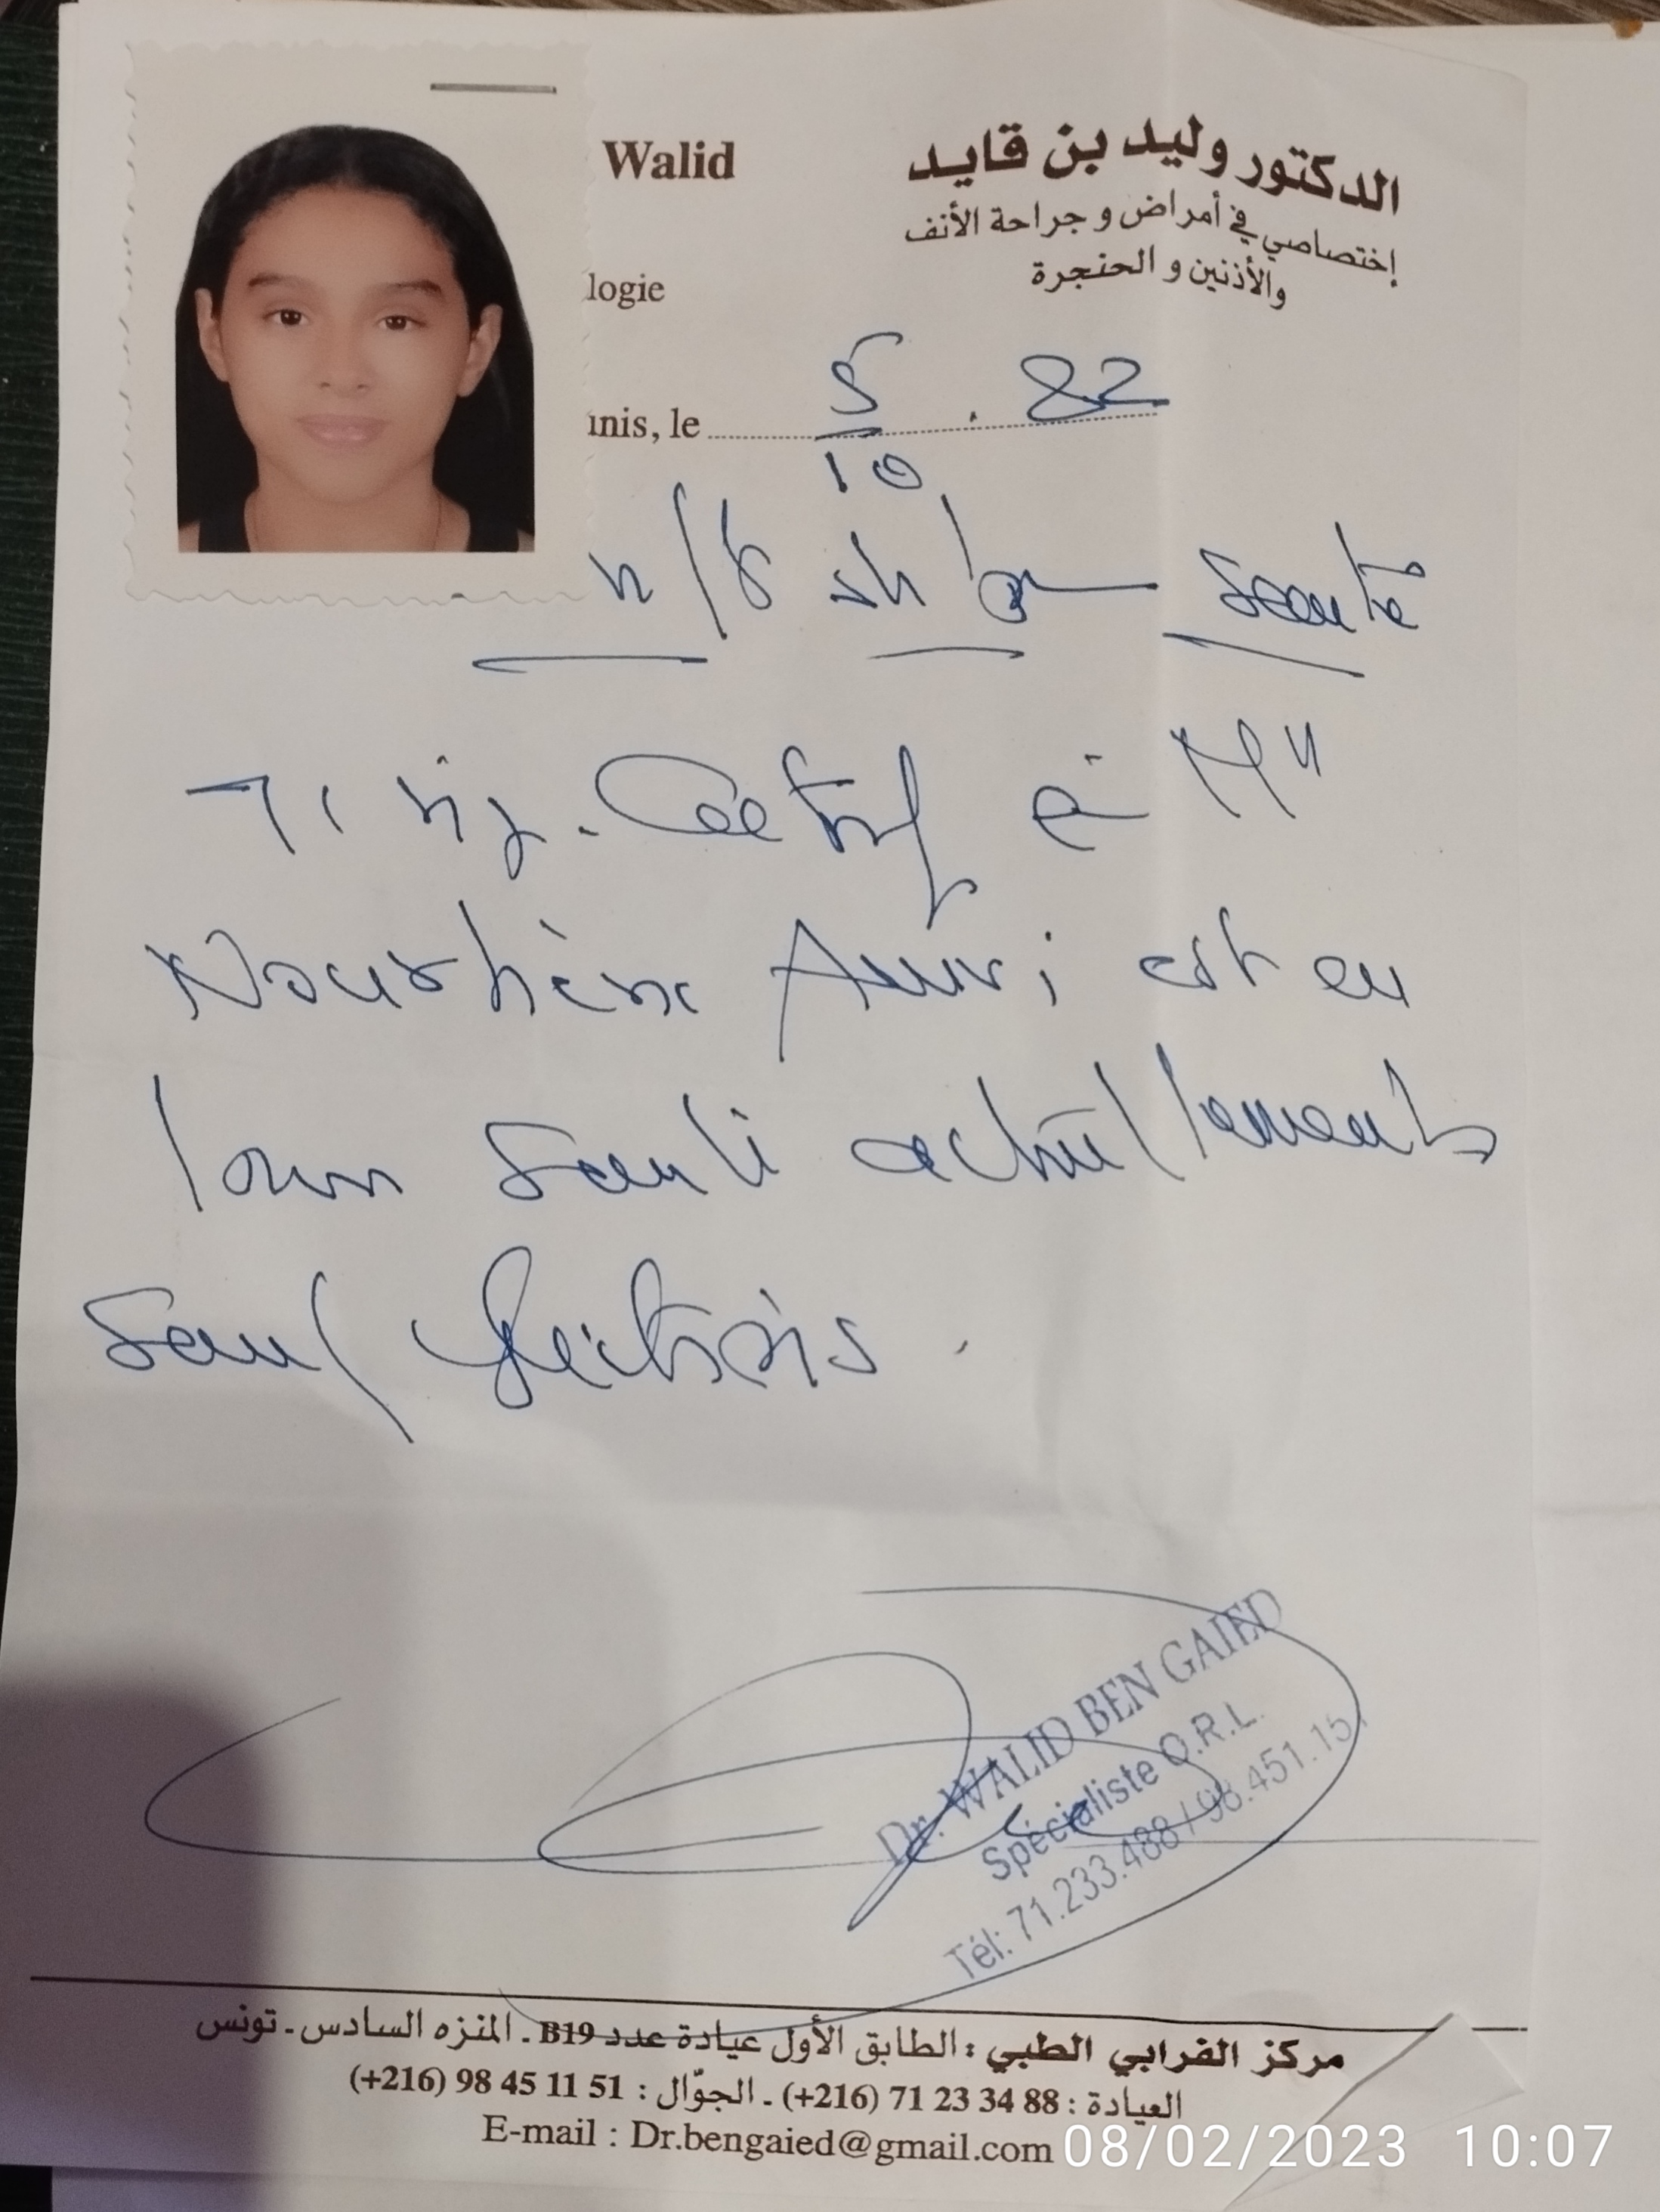 Walid
الدكتور وليد بن قايد
إختصاصي في أمراض و جراحة الأنف
والأذنين و الحنجرة
logie
unis, le 5 . 22
10
santé
à Mll
Nourhène Amri est en
bonn santé actuellement
sauf
Dr. WALID BEN GAIED
Spécialiste O.R.L.
Tél: 71.233.488 / 98.451.151
مركز الفرابي الطبي : الطابق الأول عيادة عدد B19 ـ المنزه السادس ـ تونس
العيادة : 88 34 23 71 (216+) ـ الجوّال : 51 11 45 98 (216+)
E-mail : Dr.bengaied@gmail.com
08/02/2023 10:07